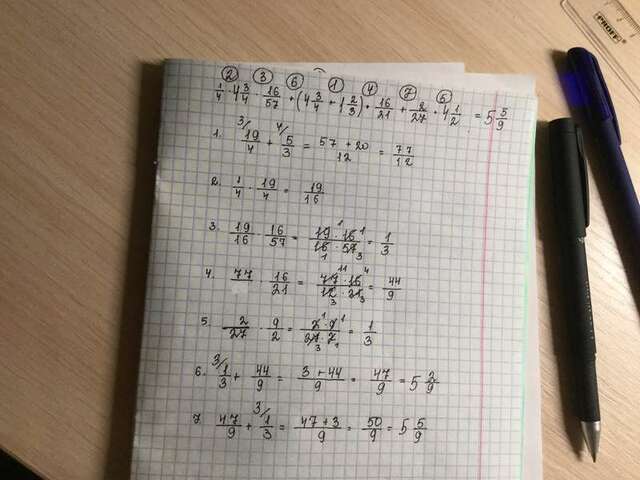 PROFF
② ③ ⑥ ① ④ ⑦ ⑤
1/4 · 4 3/4 · 16/57 + (4 3/4 + 1 2/3) · 16/21 + 2/27 · 4 1/2 = 5 5/9
1. 3/ 19/4 + 4/ 5/3 = 57+20/12 = 77/12
2. 1/4 · 19/4 = 19/16
3. 19/16 · 16/57 = 19·16/16·57 = 1/3
4. 77 · 16/21 = 77·16/12·21 = 44/9
5. 2/27 · 9/2 = 1/3
6. 3/ 1/3 + 44/9 = 3+44/9 = 47/9 = 5 2/9
7. 47/9 + 3/ 1/3 = 47+3/9 = 50/9 = 5 5/9